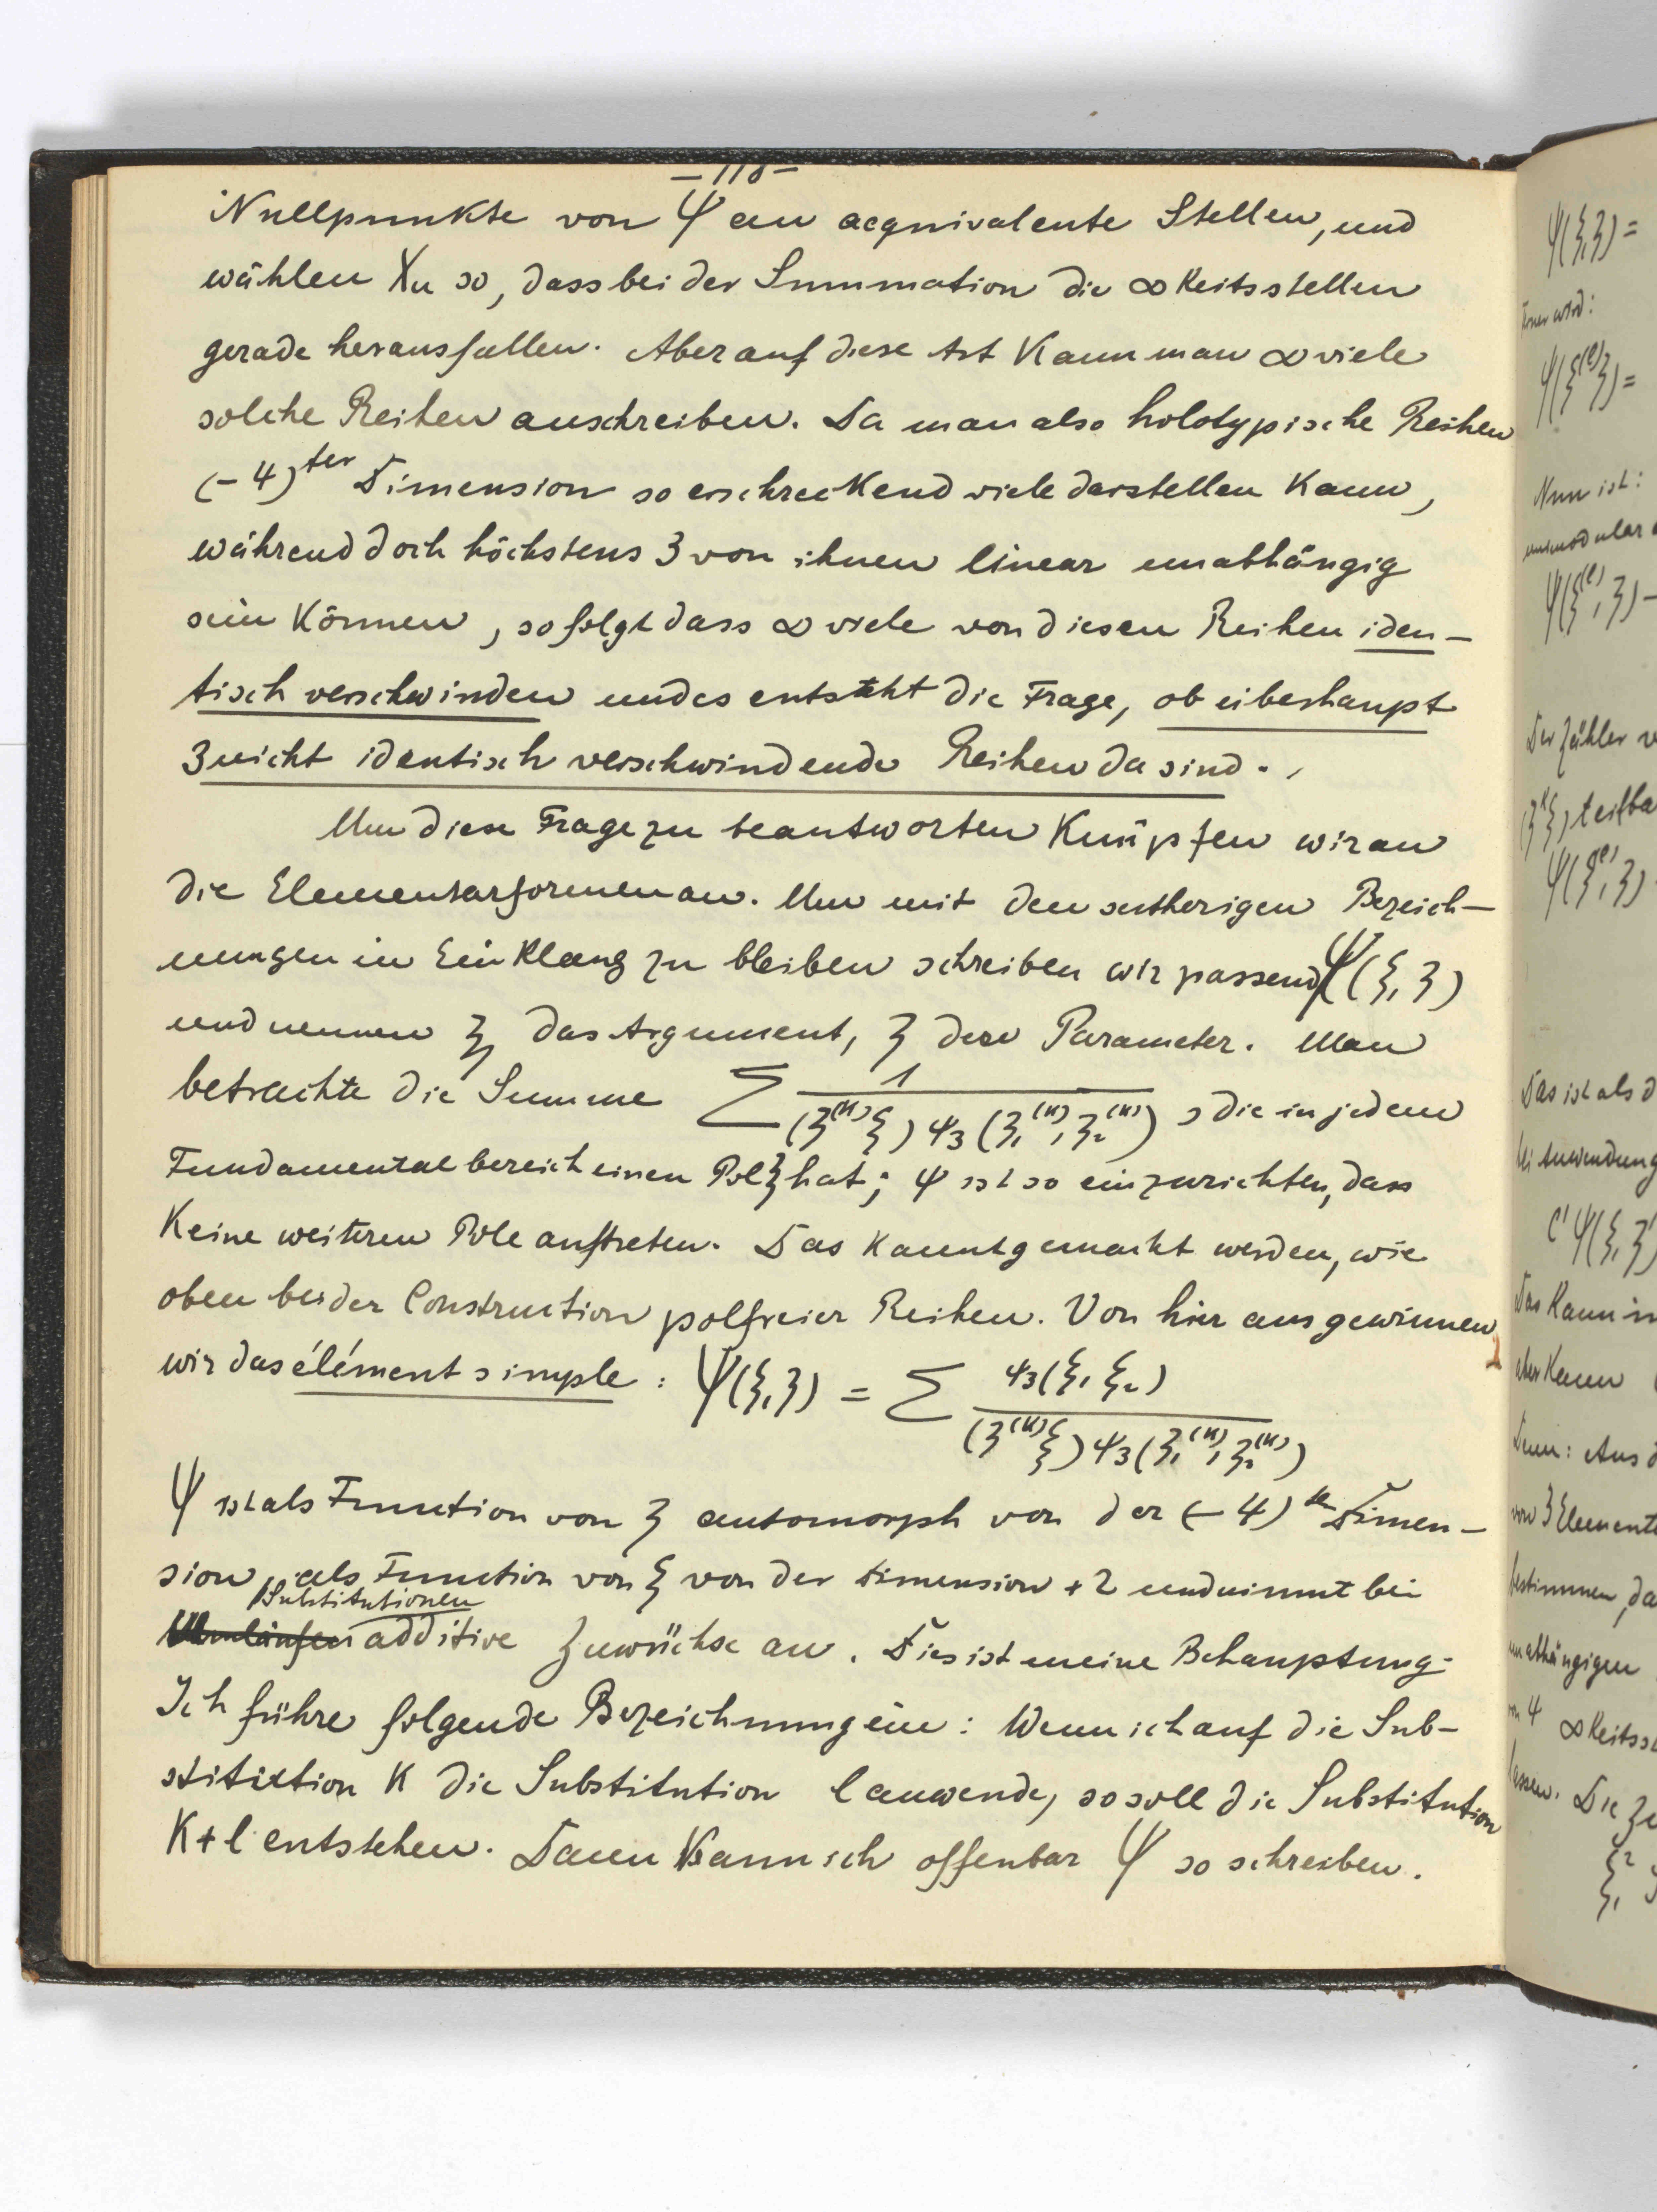 Nullpunkte von Ψ an aequivalente Stellen, und
wählen χu so, dass bei der Summation die ∞keitsstellen
gerade herausfallen. Aber auf diese Art kann man ∞ viele
solche Reihen anschreiben. Da man also holotypische Reihen
(-4)ter Dimension so erschreckend viele darstellen kann,
während doch höchstens 3 von ihnen linear unabhängig
sein können, so folgt dass ∞ viele von diesen Reihen iden-
tisch verschwinden und es entsteht die Frage, ob überhaupt
3 nicht identisch verschwindende Reihen da sind.
Um diese Frage zu beantworten knüpfen wir an
die Elementarformen an. Um mit den seitherigen Bezeich-
nungen in Einklang zu bleiben schreiben wir passend Ψ(ξ, ζ)
und nennen ξ das Argument, ζ den Parameter. Man
betrachte die Summe Σ 1/((ζ^(κ) ξ) ψ3 (ζ1^(κ), ζ2^(κ))), die in jedem
Fundamentalbereich einen Pol ζ hat; ψ ist so einzurichten, dass
keine weiteren Pole auftreten. Das kannt gemacht werden, wie
oben bei der Construction polfreier Reihen. Von hier aus gewinnen
wir das élément simple: Ψ(ξ,ζ) = Σ ψ3(ξ1 ξ2)/((ζ^(κ) ξ) ψ3(ζ1^(κ), ζ2^(κ)))
Ψ ist als Function von ζ automorph von der (-4)ten Dimen-
sion, als Function von ξ von der Dimension +2 und nimmt bei
Substitutionen
Umläufen additive Zuwüchse an. Dies ist meine Behauptung.
Ich führe folgende Bezeichnung ein: Wenn ich auf die Sub-
stitution κ die Substitution l anwende, so soll die Substitution
κ+l entstehen. Dann kann ich offenbar Ψ so schreiben.
Ψ(ξ,ζ) =
Ψ(ξ^(l) ζ) =
Nun ist:
unimodular
Ψ(ξ^(l), ζ) -
Der Zähler
Ψ(ξ^(l), ζ)
Das ist als
bei Anwendung
Das kann
aber kann
Denn: Aus
von 3 Elemente
bestimmen, da
unabhängigen
von 4 ∞keitsst
lassen. Die